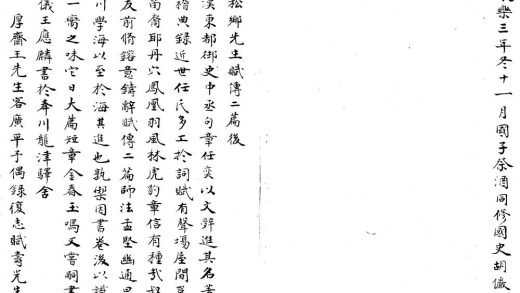 樂三年冬十一月國子祭酒同修國史胡儼
松鄉先生賦傳二篇後
漢東都御史中丞句章任奕以文辭進其名
稽典錄近世任氏多工於詞賦有聲場屋間豈
南裔耶丹穴鳳凰羽風林虎豹章信有種哉
友前脩鎔意鑄辭賦傳二篇師法孟堅幽通思
川學海以至於海其進也孰禦因書卷後以識
一臠之味它日大篇短章金舂玉鳴又嘗嗣書
儀王應麟書於奉川龍津驛舍
厚齋王先生客廣平予偶錄復志賦壽先生